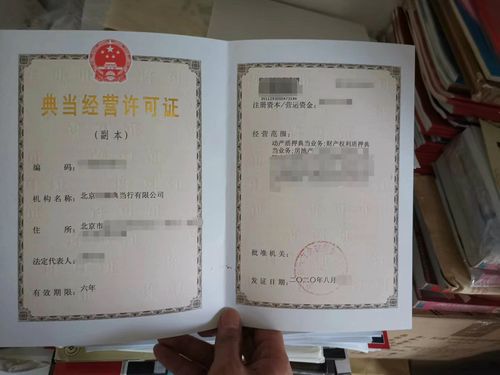 典当经营许可证
(副本)
编 码:
机构名称: 北京 典当行有限公司
住 所: 北京市
法定代表人:
有效期限: 六年
注册资本/营运资金:
经营范围:
动产质押典当业务;财产权利质押典
当业务;房地产
批准机关:
发证日期: 二〇二〇年八月